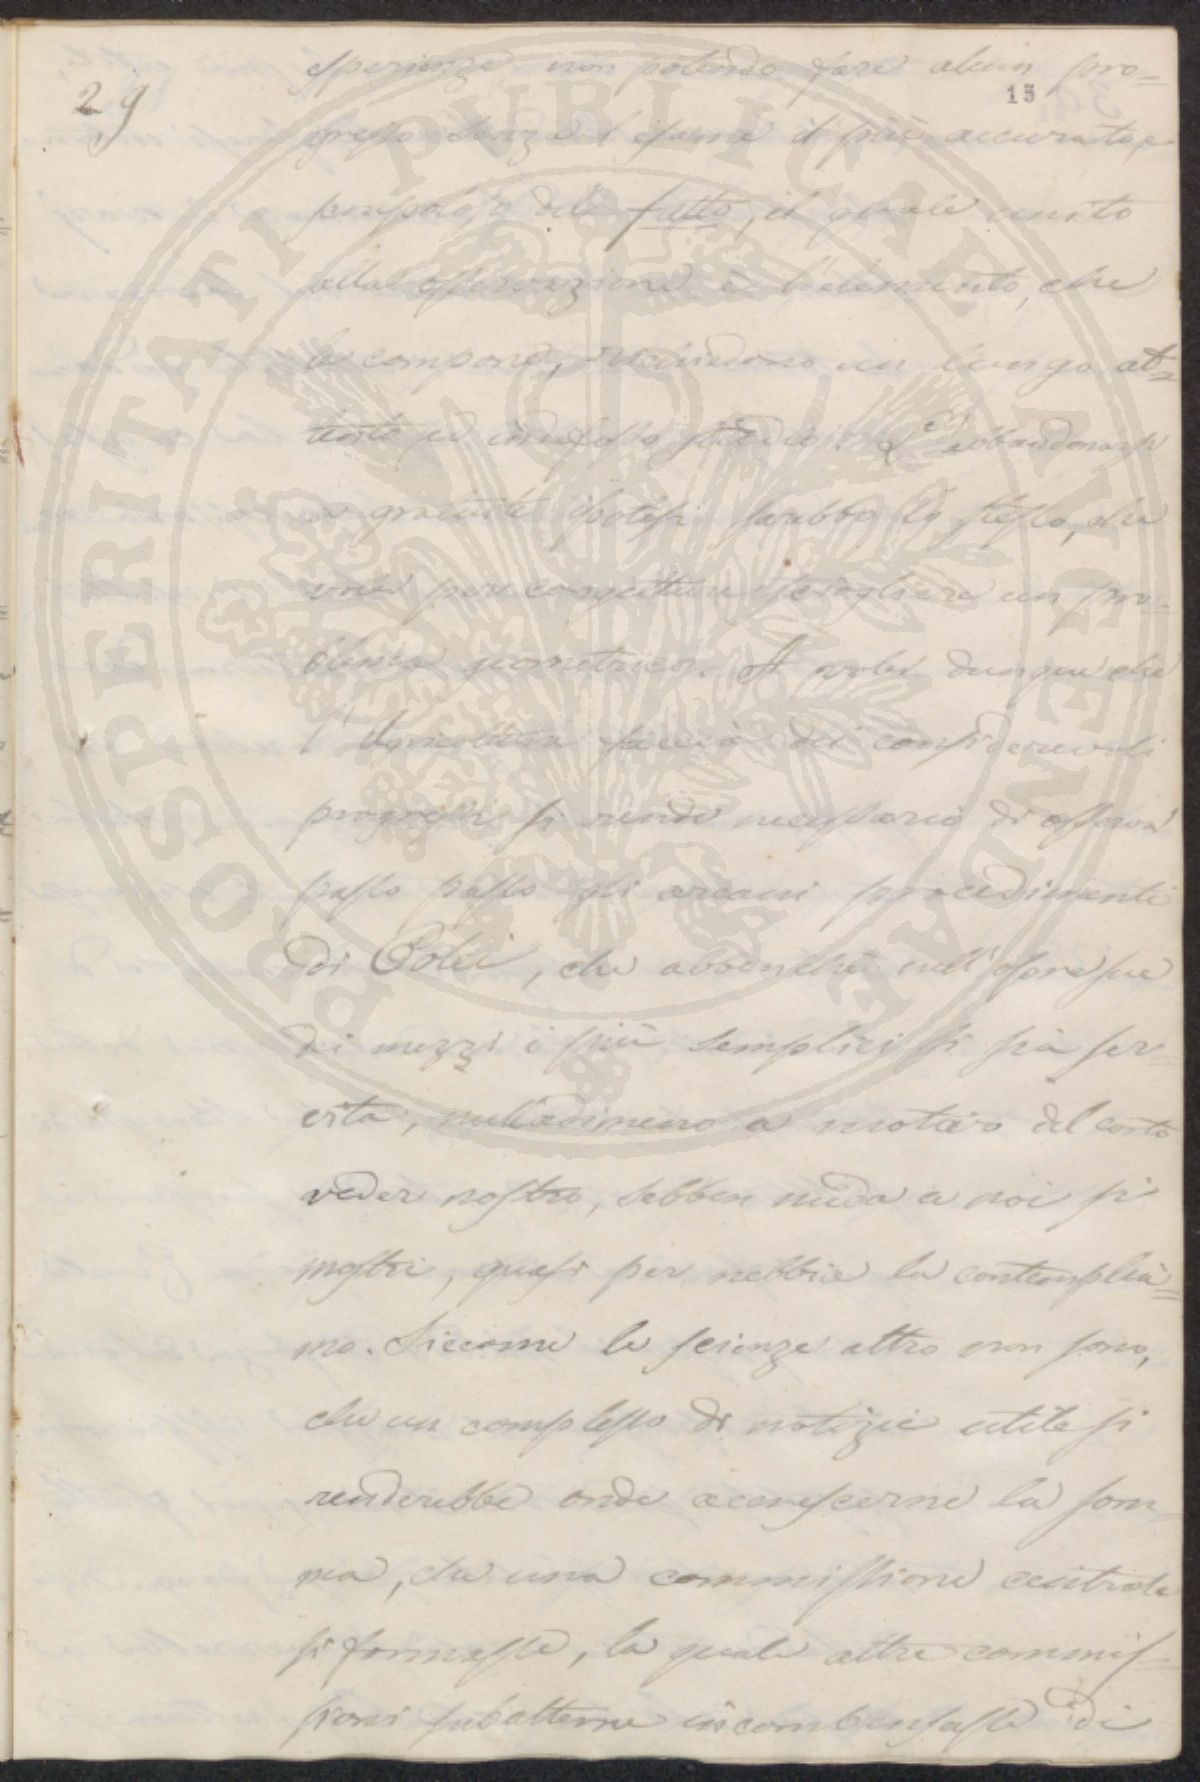 29
15
esperienze non potendo fare alcun pro=
gresso senza l'esame il più accurato, e
scrupoloso del fatto, il quale unito
alla osservazione è l'elemento, che
le compone, richiedono un lungo at=
tento ed indefesso studio. L'abbandonarsi
a gratuite ipotesi sarebbe lo stesso, che
voler per congetture sciogliere un pro=
blema geometrico. A voler dunque che
l'Agricoltura faccia dei considerevoli
progressi si rende necessario di osservar
passo passo gli arcani procedimenti
di Colei, che abbenchè nell'opre sue
dei mezzi i più semplici si sia ser=
vita, nulladimeno a motivo del corto
veder nostro, sebben nuda a noi si
mostri, quasi per nebbia la contemplia=
mo. Siccome le scienze altro non sono,
che un complesso di notizie utile si
renderebbe onde accrescerne la som=
ma, che una commissione centrale
si formasse, la quale altre commis=
sioni subalterne incombensasse di
PROSPERITATI PUBLICAE AUGENDAE